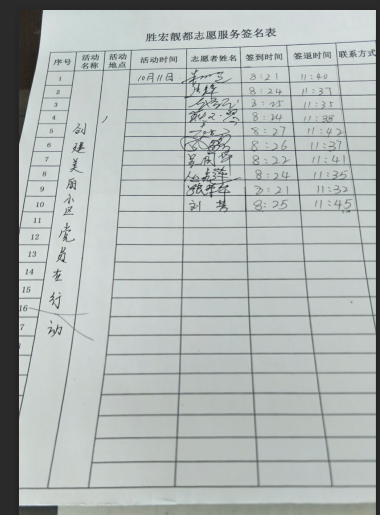 胜宏靓都志愿服务签名表
序号 活动名称 活动地点 活动时间 志愿者姓名 签到时间 签退时间 联系方式
1 10月11日 8:21 11:40
2 8:24 11:37
3 8:25 11:35
4 8:24 11:38
5 8:27 11:42
6 8:26 11:37
7 8:22 11:41
8 8:24 11:35
9 8:21 11:32
10 刘 8:25 11:45
11
12
13
14
15
16
7
18
19
创建美丽小区党员在行动